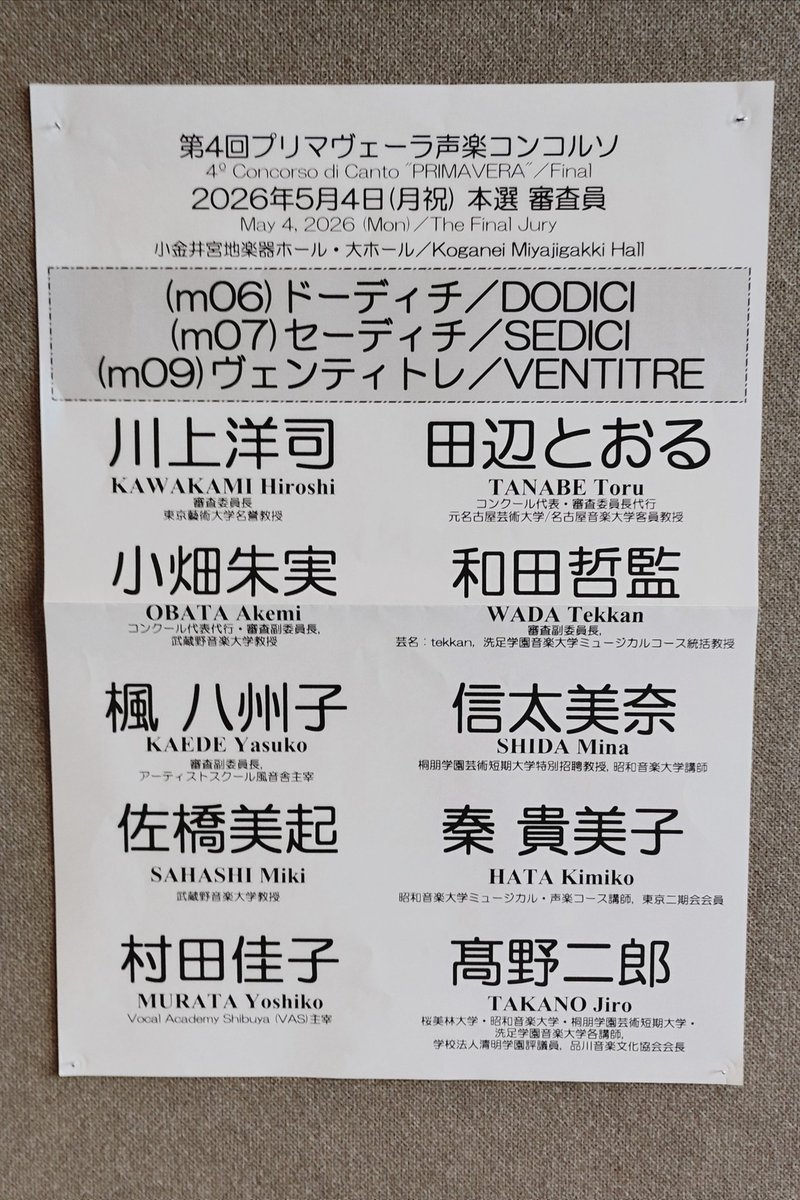 第4回プリマヴェーラ声楽コンコルソ
4º Concorso di Canto "PRIMAVERA"／Final
2026年5月4日(月祝) 本選 審査員
May 4, 2026 (Mon)／The Final Jury
小金井宮地楽器ホール・大ホール／Koganei Miyajigakki Hall
(m06)ドーディチ／DODICI
(m07)セーディチ／SEDICI
(m09)ヴェンティトレ／VENTITRE
川上洋司
KAWAKAMI Hiroshi
審査委員長
東京藝術大学名誉教授
田辺とおる
TANABE Toru
コンクール代表・審査委員長代行
元名古屋芸術大学/名古屋音楽大学客員教授
小畑朱実
OBATA Akemi
コンクール代表代行・審査副委員長,
武蔵野音楽大学教授
和田哲監
WADA Tekkan
審査副委員長,
芸名：tekkan, 洗足学園音楽大学ミュージカルコース統括教授
楓 八州子
KAEDE Yasuko
審査副委員長,
アーティストスクール風音舎主宰
信太美奈
SHIDA Mina
桐朋学園芸術短期大学特別招聘教授, 昭和音楽大学講師
佐橋美起
SAHASHI Miki
武蔵野音楽大学教授
秦 貴美子
HATA Kimiko
昭和音楽大学ミュージカル・声楽コース講師, 東京二期会会員
村田佳子
MURATA Yoshiko
Vocal Academy Shibuya (VAS)主宰
髙野二郎
TAKANO Jiro
桜美林大学・昭和音楽大学・桐朋学園芸術短期大学・
洗足学園音楽大学各講師,
学校法人清明学園評議員, 品川音楽文化協会会長